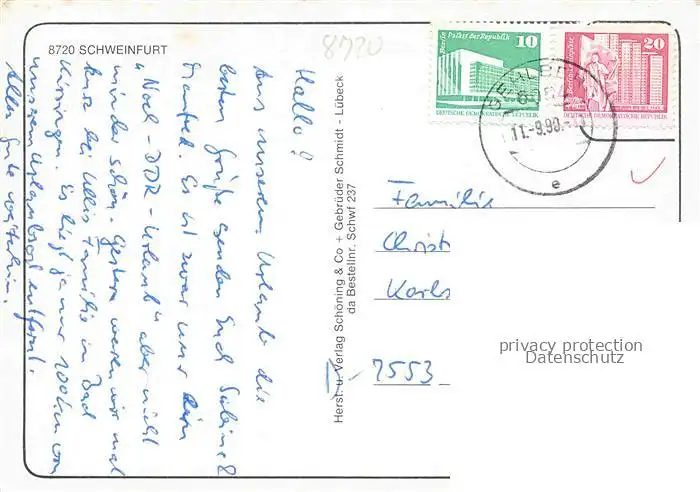 8720 SCHWEINFURT
8720
Hallo!
Aus unserem Urlaub die
besten Grüße senden Euch Sabine &
Manfred. Es ist zwar nur ein
"Noch-DDR-Urlaub" aber nicht
minder schön. Gestern waren wir mal
kurz bei Ullis Familie in Bad
Kissingen. Es liegt ja nur 100 km von
unserem Urlaubsort entfernt.
Alles Gute weiterhin.
Herst. u. Verlag Schöning & Co + Gebrüder Schmidt - Lübeck
da Bestellnr. Schwf 237
Berlin Palast der Republik
10
DEUTSCHE DEMOKRATISCHE REPUBLIK
20
DEUTSCHE DEMOKRATISCHE REPUBLIK
11.-9.90.
e
Familie
Christ
Karls
7553
privacy protection
Datenschutz